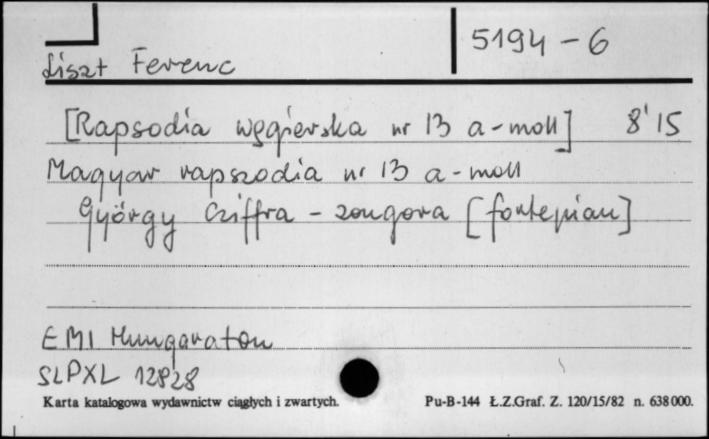 5194 - 6
Liszt Ferenc
[Rapsodia węgierska nr 13 a-moll] 8'15
Magyar rapszodia nr 13 a-moll
György Cziffra - zongora [fortepian]
EMI Hungaraton
SLPXL 12828
Karta katalogowa wydawnictw ciągłych i zwartych. Pu-B-144 Ł.Z.Graf. Z. 120/15/82 n. 638000.